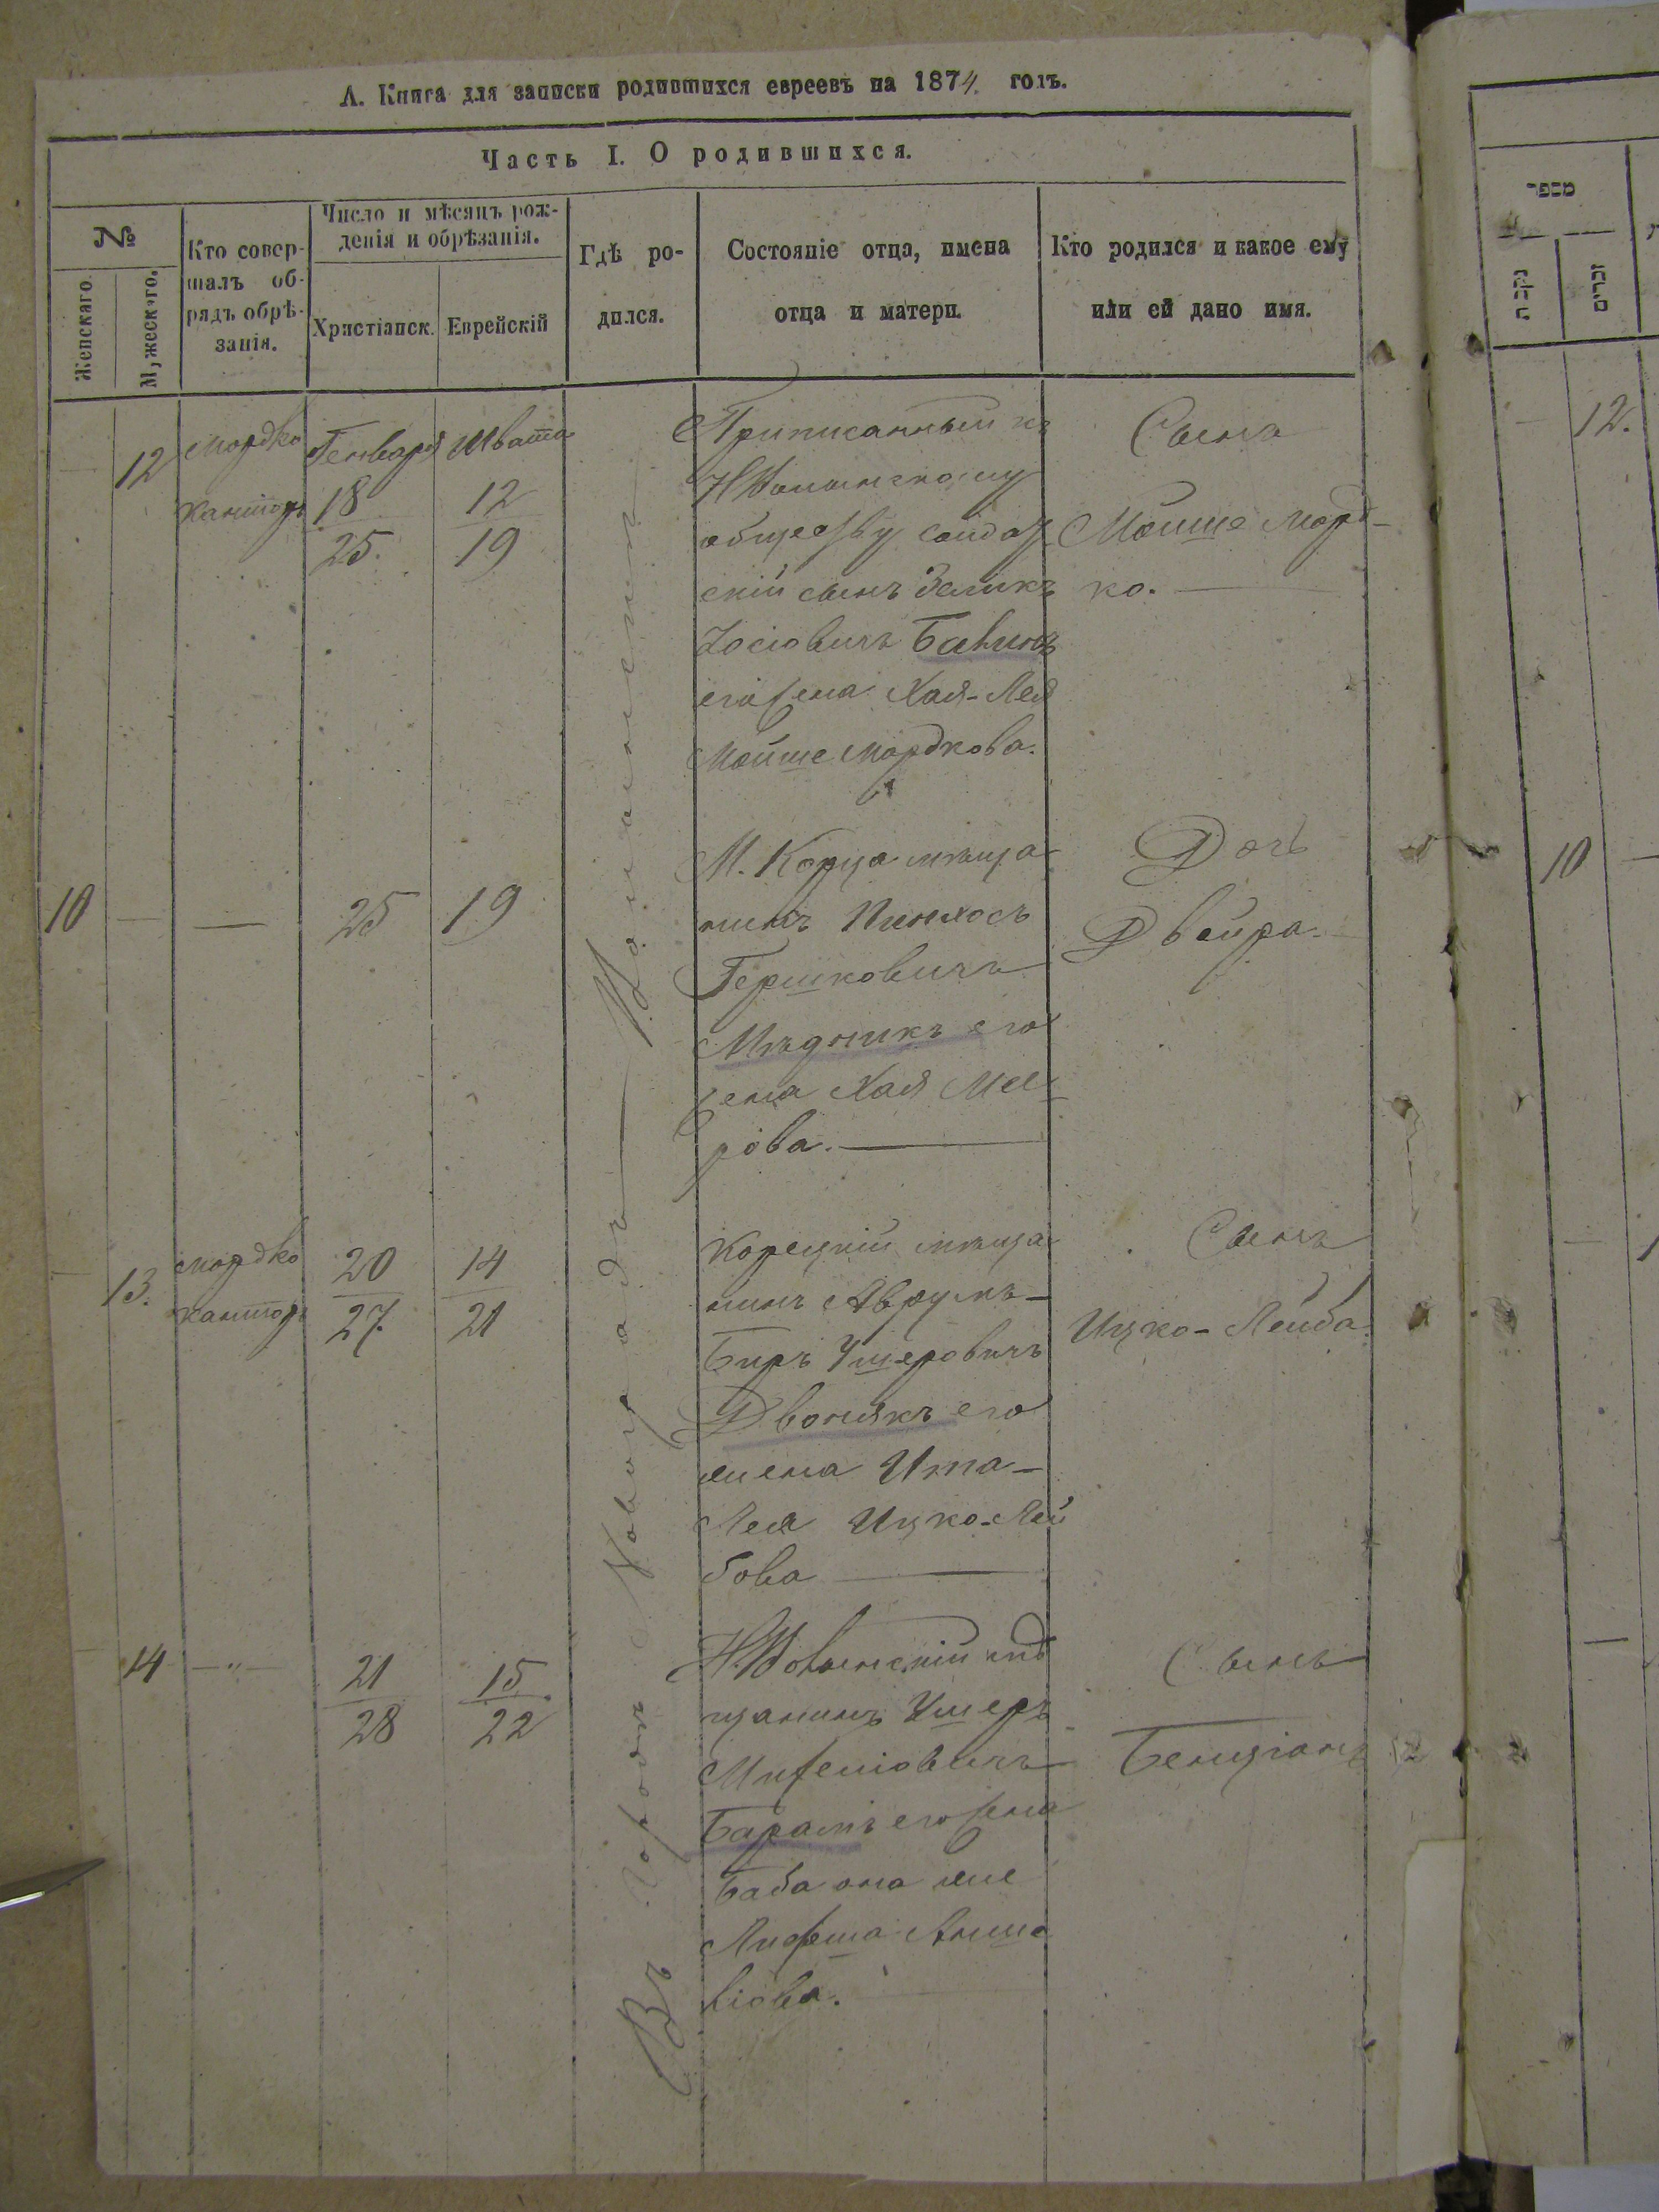 А. Книга для записки родившихся евреевъ на 1874. годъ.
Часть I. О родившихся.
№
Женскаго.
Мужескаго.
Кто совер-
шалъ об-
рядъ обрѣ-
занія.
Число и мѣсяцъ рож-
денія и обрѣзанія.
Христіанск.
Еврейскій
Гдѣ ро-
дился.
Состояніе отца, имена
отца и матери.
Кто родился и какое ему
или ей дано имя.
Въ городѣ Новоградъ Волынскѣ
12
Мордко
Канторъ
Генваря
18
25.
Швата
12
19
Приписанный къ
НВолынскому
обществу солдат-
скій сынъ Зеликъ
Іосіовичъ
его жена Хая-Лея
Мойше Мордкова.
Сынъ
Мойше Морд-
ко.
10
25
19
М. Корца мѣща-
нинъ Пинхосъ
Гершковичъ
Мѣдникъ его
жена Хая Мее-
рова.
Дочь
Двейра.
13.
Мордко
Канторъ
20
27.
14
21
Корецкій мѣща-
нинъ Аврумъ-
Беръ Ушеровичъ
Двонякъ его
жена Ита-
Лея Ицко-Лей
бова
Сынъ
Ицко-Лейба.
14
-"-
21
28
15
22
Н.Волынскій мѣ
щанинъ Ушеръ
Барамъ его жена
Баба она же
Сынъ
Бенціонъ
מספר
נקבות
זכרים
12.
10